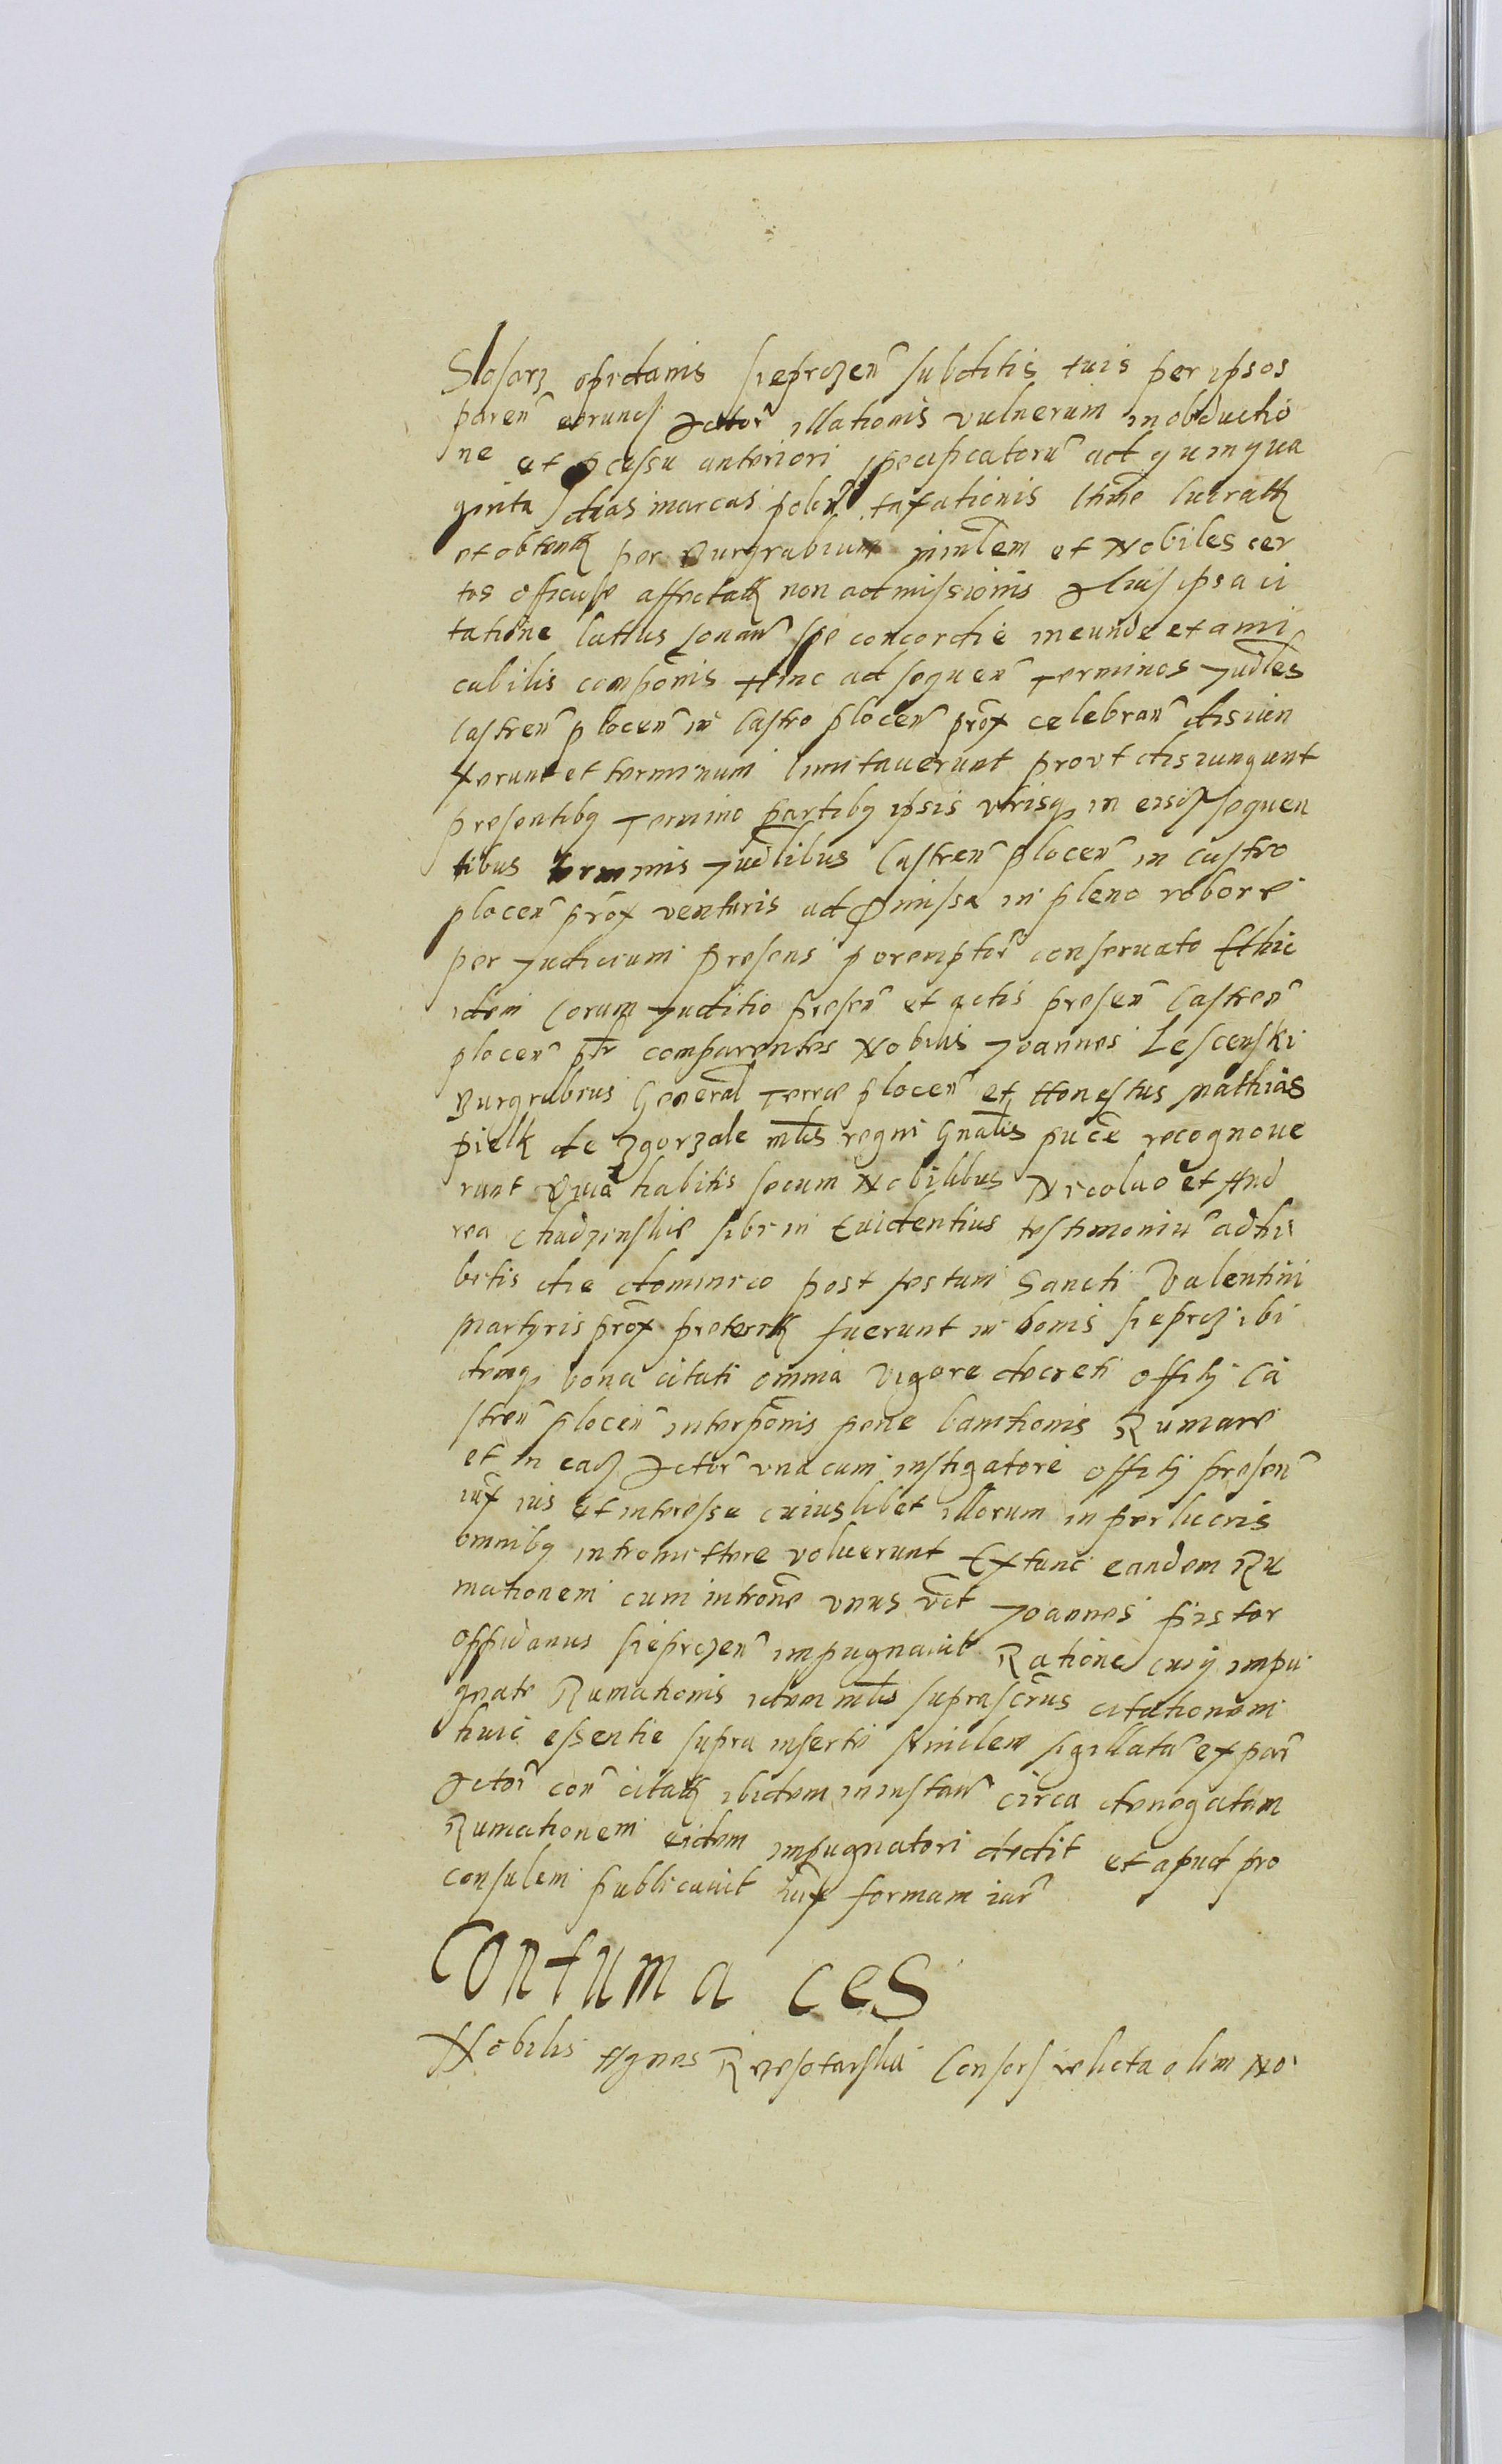 Slosarz opidanis sieprczen̄ subditis tuis per ipsos
paren̄ eorundē Actor̄ illationis vulnerum in obductio
ne et ꝓcessu anteriori specificatoru̅ ad quinqua
ginta duas marcas polon̄ taxationis ltime lucratꝭ
et obtentꝭ per Burgrabium minlem et Nobiles cer
tos officiose affectatꝭ non admissionis Alias ipsa ci
tatione latius sonan̄ spe concordie ineunde et ami
cabilis compōnis Hinc ad sequen̄ Terminos Judles
Castren̄ plocen̄ in Castro plocen̄ prox̄ celebran̄ disiun
xerunt et terminum limitauerunt prout disiungunt
presentibꝫ Termino partibꝫ ipsis vtrisqꝫ in eisdē sequen
tibus terminis Judlibus Castren̄ plocen̄ in castro
plocen̄ prox̄ venturis ad p̄missa in pleno robore
per Judicium presens peremptor̄ conseruato Et hic
idem Coram Juditio presen̄ et actis presen̄ Castren̄
plocen̄ ptr comparentes Nobilis Joannes Lescenski
Burgrabius General Terre plocen̄ et Honestus Mathias
pielk de Zgorzale mlis regni Gnalis puce recognoue
runt Quia habitis secum Nobilibus Nicolao et And
rea Chudzinskie sibi in Euidentius testimoniu̅ adhi
bitis die dominico post festum Sancti Valentini
Martyris prox̄ preteritꝭ fuerunt in bonis sieprcz ibi
demqꝫ bona citati omnia Vigore decreti offitij Ca
stren̄ plocen̄ interpōnis pene bannitionis Rumare
et in eadē Actor̄ vna cum instigatore offitij presen̄
iux̄ ius et interesse cuiuslibet illorum in perlucris
omnibꝫ intromittere voluerunt Extunc eandem Ru
mationem cum intrōne vnus vct Joannes pistor
oppidanus sieprczen̄ impugnauit Ratione cuiꝯ impu
gnate Rumationis idem mlis suprascrus citationem
huic essentie supra inserte similem sigillata̅ ex par̄
Actor̄ con̄ citatꝭ ibidem in instan̄ circa denegatam
Rumationem eidem impugnatori dedit et apud pro
consulem publicauit iux̄ formam iur̄
Contuma ces
Nobilis Agnes Consors relicta olim No